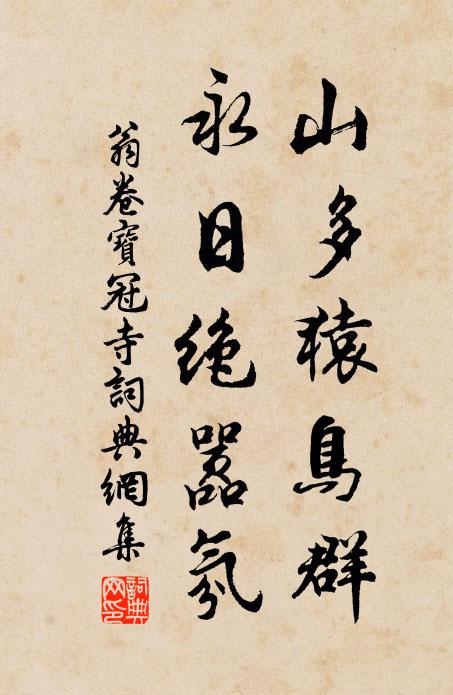 山多猿鳥群
永日絶嚣氛
翁卷寶冠寺詞典網集
詞典網印